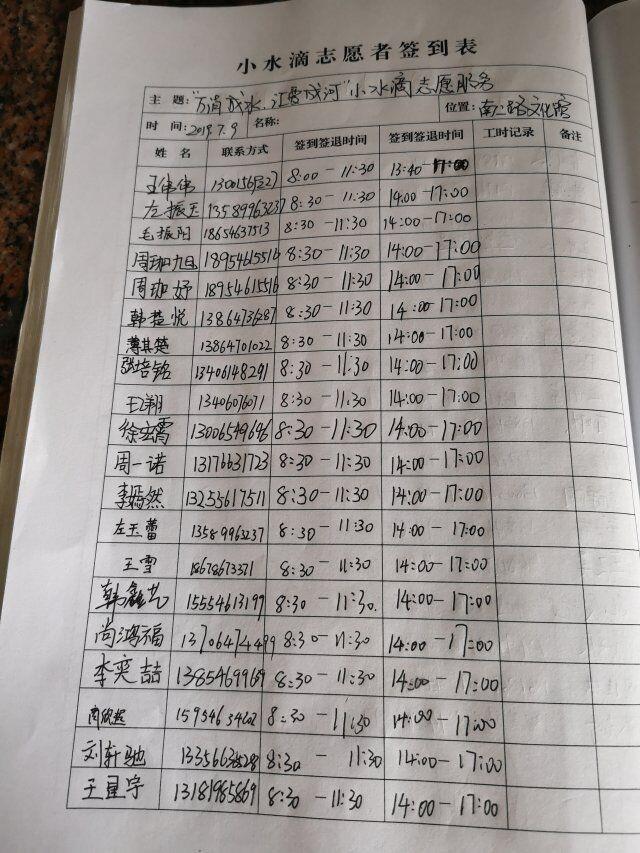 小水滴志愿者签到表
主 题: "百消成水,江雪成河"小水滴志愿服务
时 间: 2019.7.9 名称: 位置: 南二路文化馆
姓 名 联系方式 签到签退时间 签到签退时间 工时记录 备注
王伟伟 8:00-11:30 13:40-17:00
左振玉 13589963237 8:30-11:30 14:00-17:00
毛振阳 18654637513 8:30-11:30 14:00-17:00
周珈九 18954615516 8:30-11:30 14:00-17:00
周珈妤 18954615516 8:30-11:30 14:00-17:00
韩楚悦 13864736287 8:30-11:30 14:00-17:00
薄其楚 13864701022 8:30-11:30 14:00-17:00
张培铭 13406148291 8:30-11:30 14:00-17:00
王翔 1340607071 8:30-11:30 14:00-17:00
徐宏霄 13006549696 8:30-11:30 14:00-17:00
周一诺 13176631723 8:30-11:30 14:00-17:00
李嫣然 13255617511 8:30-11:30 14:00-17:00
左玉蕾 13589963237 8:30-11:30 14:00-17:00
王雪 18678673371 8:30-11:30 14:00-17:00
韩鑫艺 15554613197 8:30-11:30. 14:00-17:00
尚鸿福 13706474499 8:30-11:30 14:00-17:00
李奕喆 1385469969 8:30-11:30 14:00-17:00
15954634602 8:30-11:30 14:00-17:00
刘轩驰 8:30-11:30 14:00-17:00
王星宇 13181985869 8:30-11:30 14:00-17:00